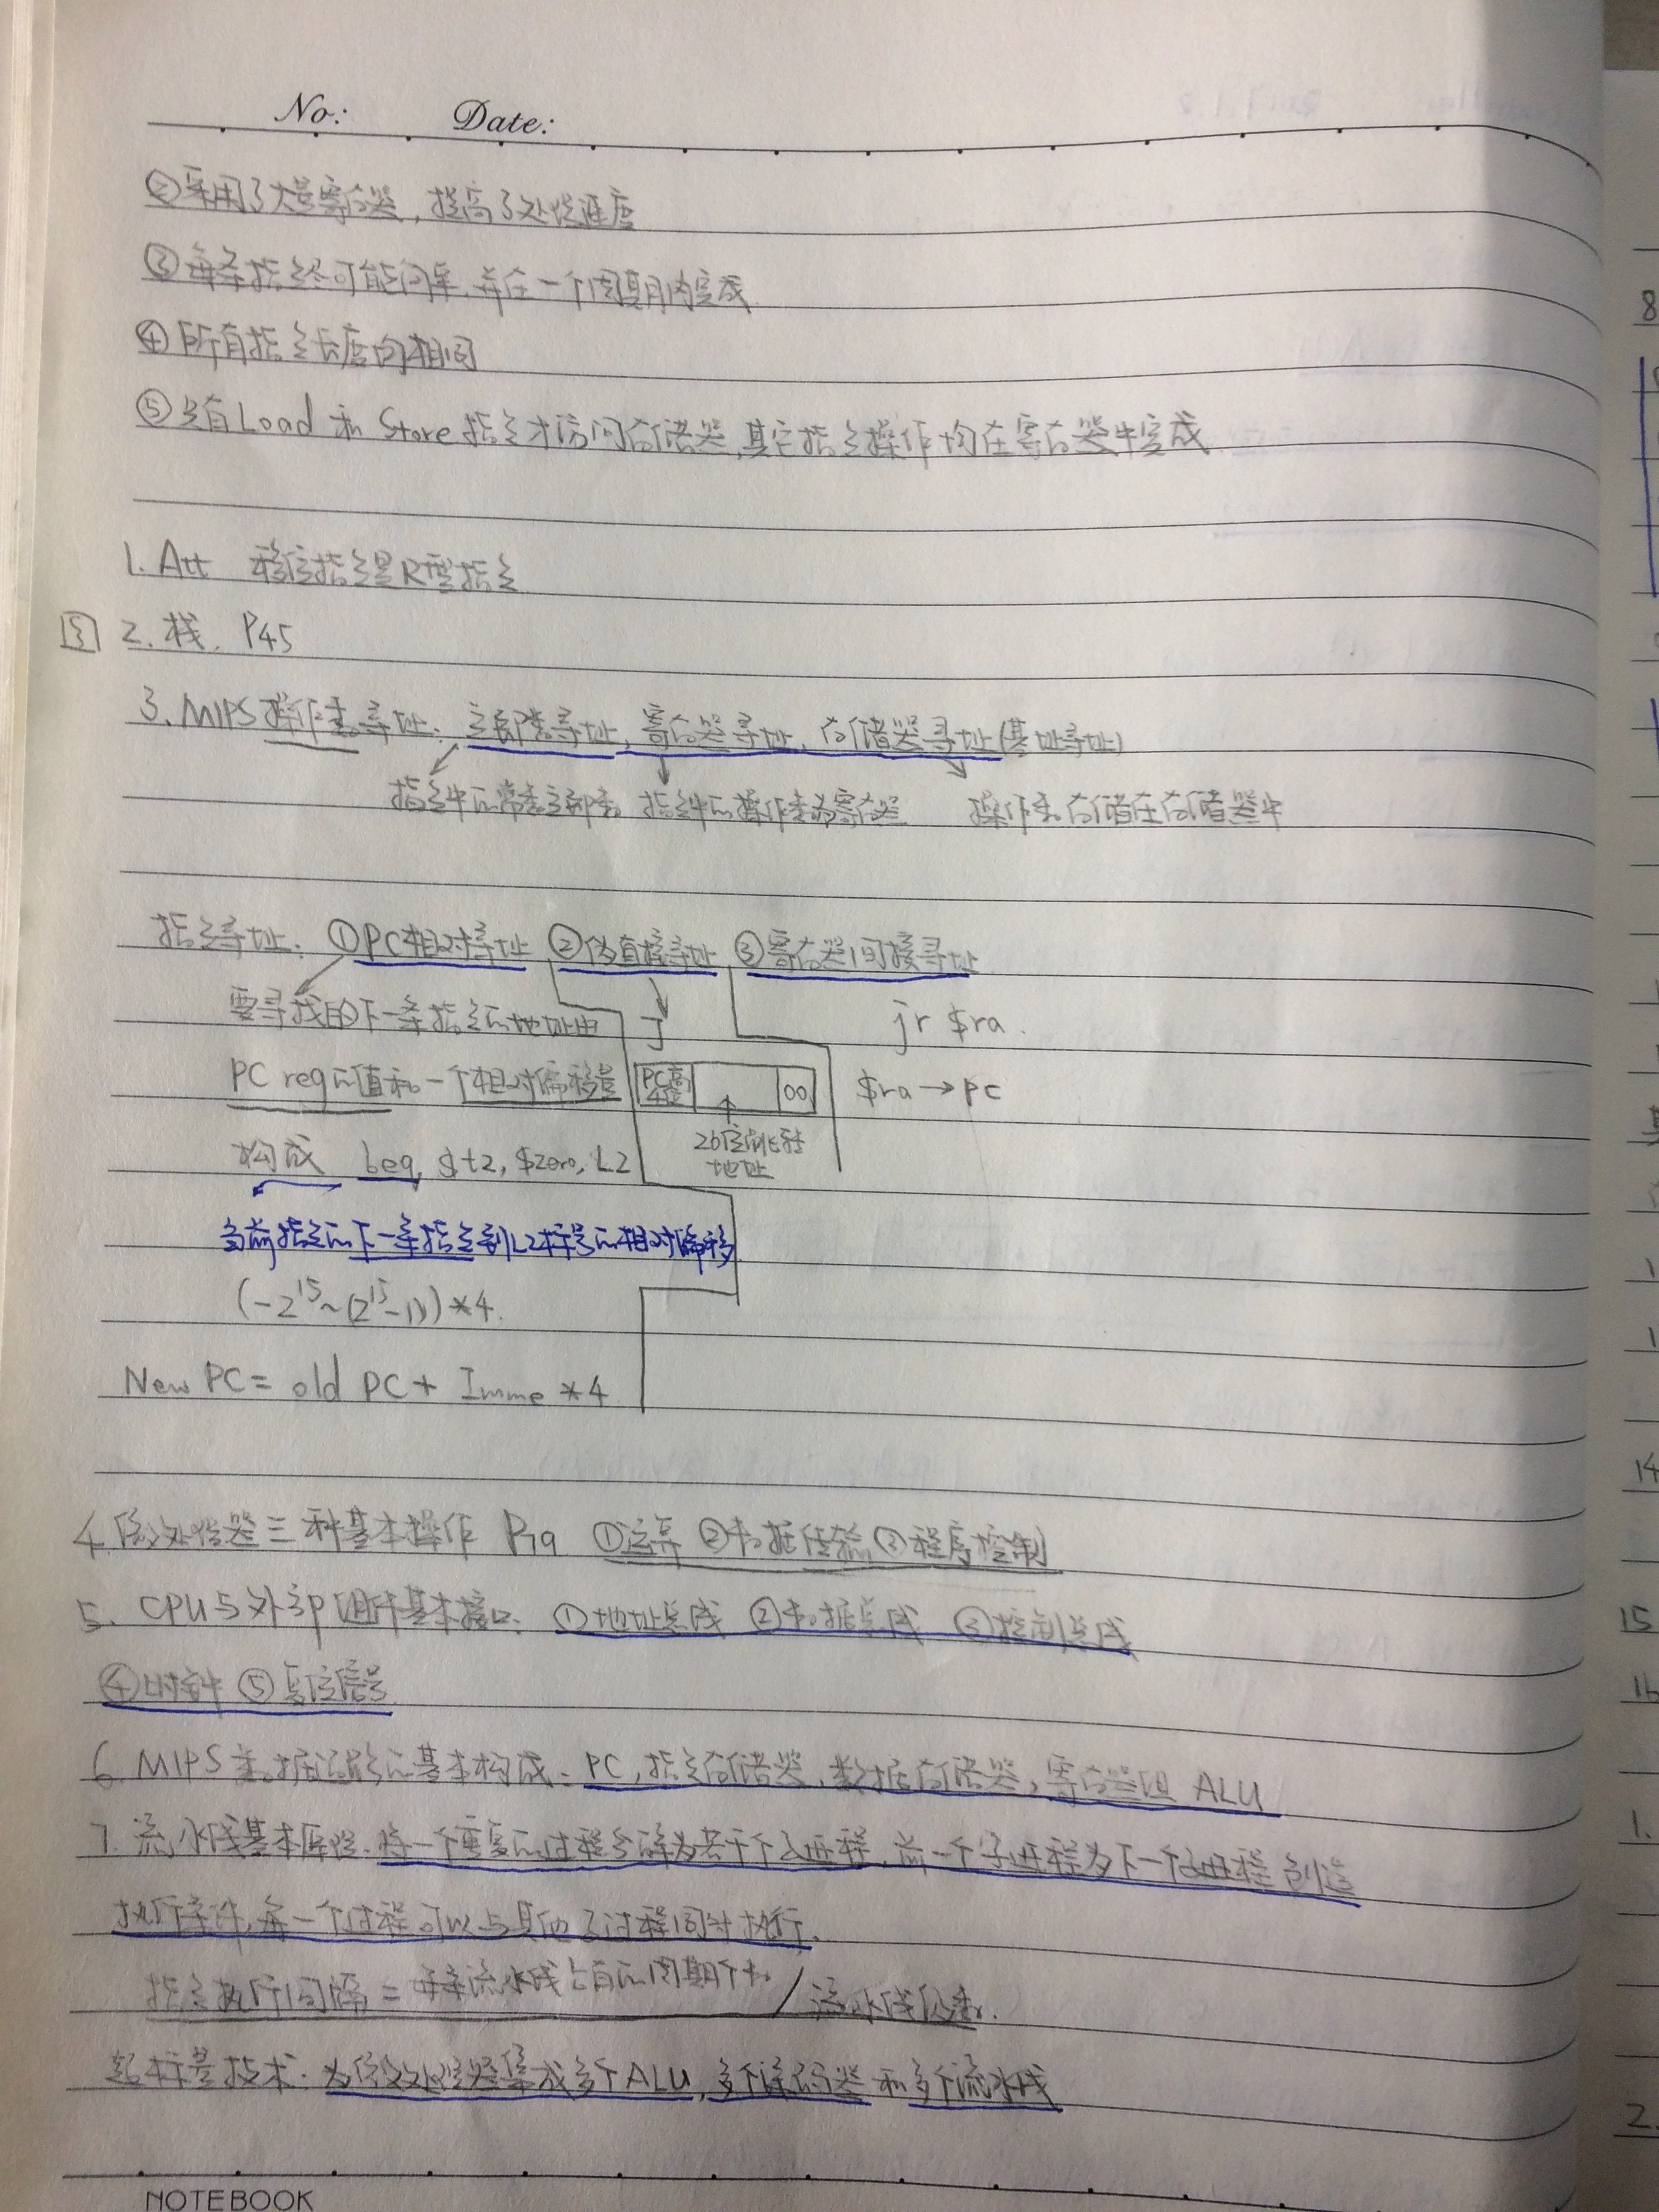 No: Date:
②采用了大量寄存器,提高了处理速度
③每条指令尽可能简单,并在一个周期内完成
④所有指令长度均相同
⑤只有Load 和 Store指令才访问存储器,其它指令操作均在寄存器中完成
1. Att 移位指令是R型指令
2. 栈. P45
3. MIPS操作数寻址: 立即数寻址, 寄存器寻址, 存储器寻址(基址寻址)
指令中的常数立即数 指令中的操作数为寄存器 操作数存储在存储器中
指令寻址: ①PC相对寻址 ②伪直接寻址 ③寄存器间接寻址
要寻找的下一条指令的地址由 J jr $ra.
PC reg的值和一个相对偏移量 PC高4位 00 $ra→pc
构成 beq, $t2, $zero, L2 26位的跳转地址
当前指令的下一条指令到L2标号的相对偏移
(-2¹⁵~(2¹⁵-1))*4.
New PC = old PC + Imme *4
4. 微处理器三种基本操作 P79 ①运算 ②数据传输 ③程序控制
5. CPU与外部组件基本接口: ①地址总线 ②数据总线 ③控制总线
④时钟 ⑤复位信号
6. MIPS数据通路的基本构成: PC, 指令存储器, 数据存储器, 寄存器组 ALU
7. 流水线基本原理: 将一个重复的过程分解为若干个子过程, 前一个子过程为下一个子过程创造
执行条件, 每一个过程可以与其他子过程同时执行.
指令执行间隔 = 每条流水线占有的周期个数/流水线级数.
超标量技术: 为微处理器集成多个ALU, 多个译码器和多个流水线
NOTEBOOK
8
14
15
16
1.
2.